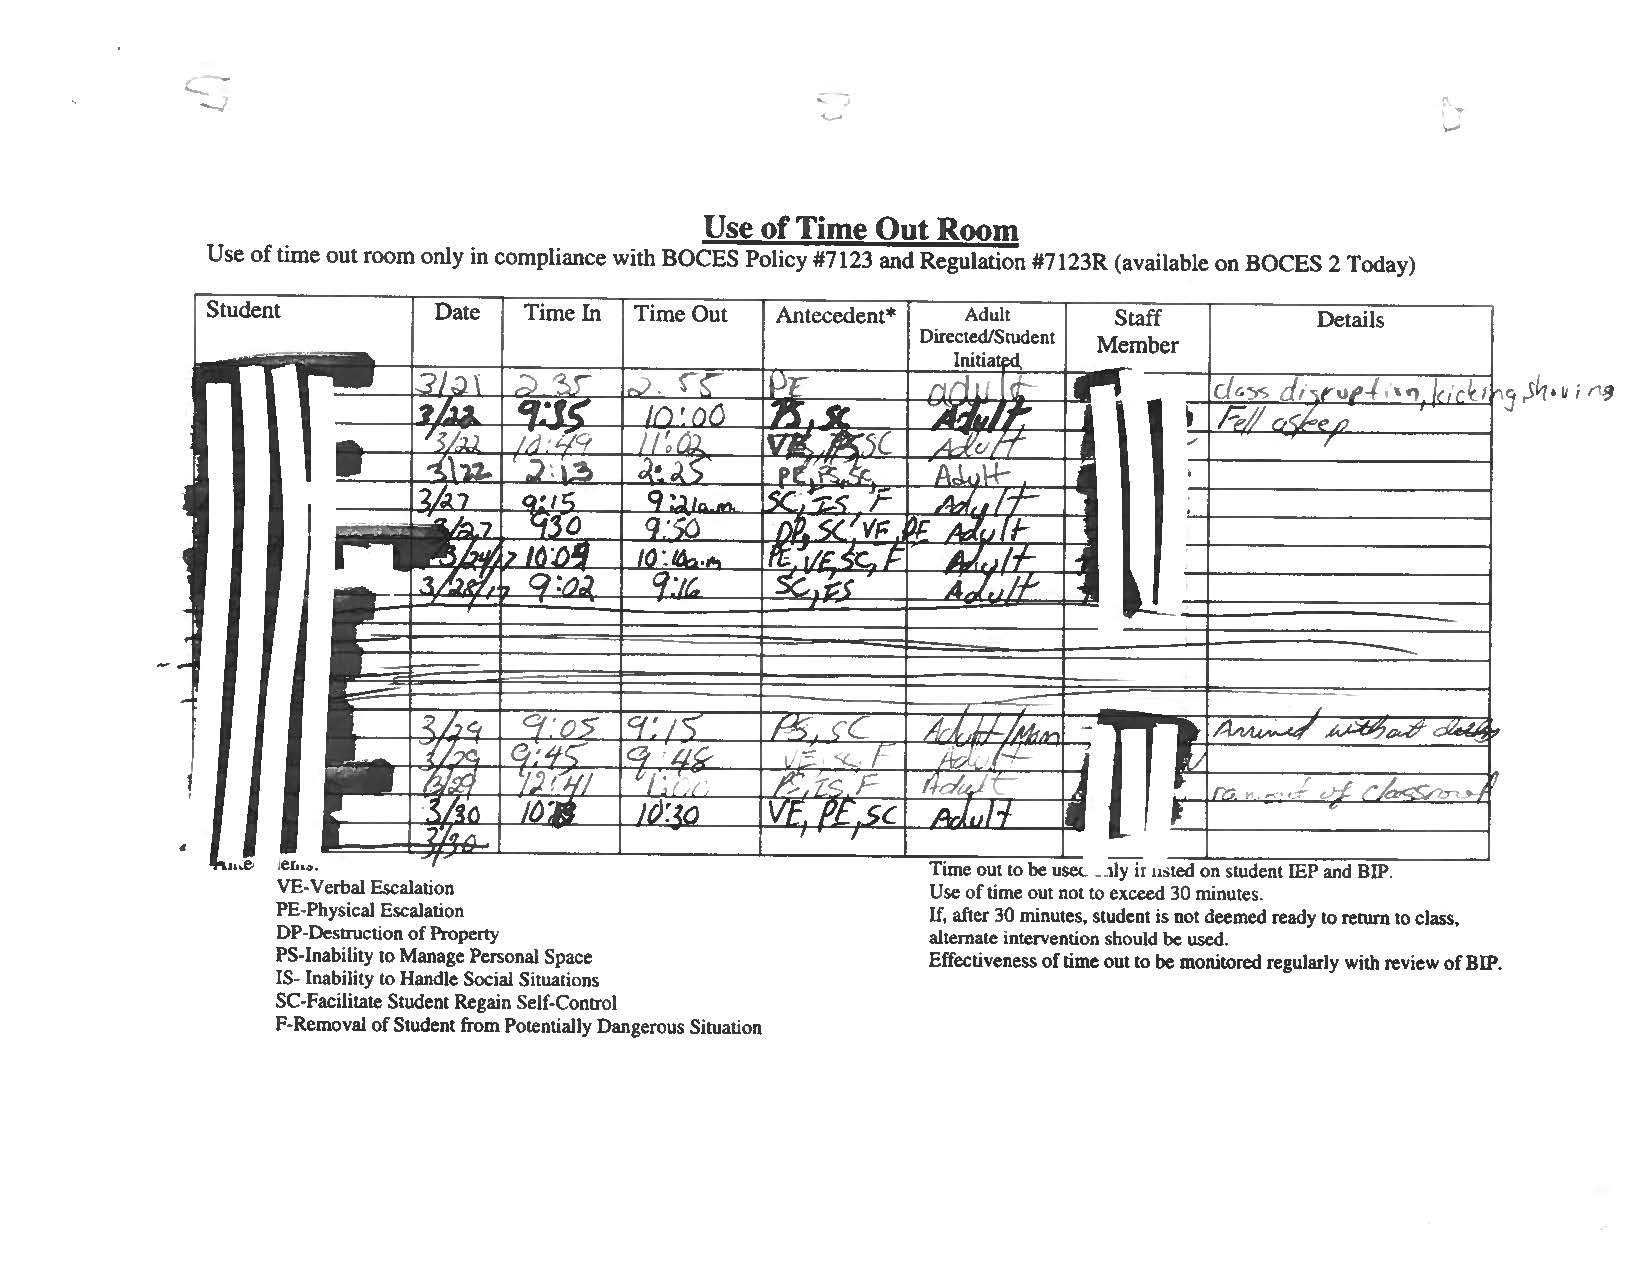 Use of Time Out Room
Use of time out room only in compliance with BOCES Policy #7123 and Regulation #7123R (available on BOCES 2 Today)
Student Date Time In Time Out Antecedent* Adult Directed/Student Initiated Staff Member Details
3/21 2:35 2:55 PE adult class disruption, kicking, shoving
3/22 9:35 10:00 PS, SC Adult Fell asleep
3/22 10:49 11:02 VE, PS, SC Adult
3/22 2:13 2:25 PE, PS, SC, Adult
3/27 9:15 9:21a.m. SC, IS, F Adult
3/27 930 9:50 DP, SC, VE, PE Adult
10:09 10:10a.m PE, VE, SC, F Adult
3/28/17 9:02 9:16 SC, ES Adult
3/29 9:05 9:15 PS, SC Adult/Mom Arrived without
3/29 9:45 9:48 VE, SC, F Adult
3/29 12:41 1:00 PS, IS, F Adult ran out of classroom
3/30 10:30 VE, PE, SC Adult
3/30
VE-Verbal Escalation
PE-Physical Escalation
DP-Destruction of Property
PS-Inability to Manage Personal Space
IS- Inability to Handle Social Situations
SC-Facilitate Student Regain Self-Control
F-Removal of Student from Potentially Dangerous Situation
Time out to be used only if listed on student IEP and BIP.
Use of time out not to exceed 30 minutes.
If, after 30 minutes, student is not deemed ready to return to class,
alternate intervention should be used.
Effectiveness of time out to be monitored regularly with review of BIP.